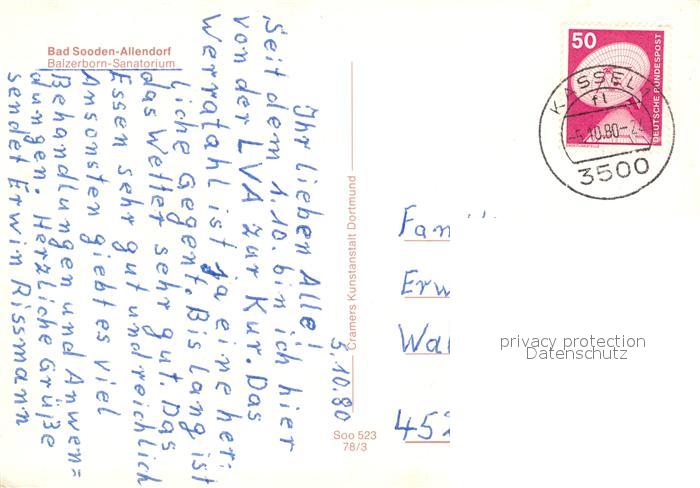 Bad Sooden-Allendorf
Balzerborn-Sanatorium
3.10.80
Ihr lieben Alle!
Seit dem 1.10. bin ich hier
von der LVA zur Kur. Das
Werratahl ist ja eine herr:
liche Gegent. Bis lang ist
das Wetter sehr gut. Das
Essen sehr gut und reichlich
Ansonsten giebt es viel
Behandlungen und Anwen=
dungen. Herzliche Grüße
sendet Erwin Rissmann
Cramers Kunstanstalt Dortmund
Soo 523
78/3
50
DEUTSCHE BUNDESPOST
KASSEL
10.80
3500
Fam
Erw
Wal
452
privacy protection
Datenschutz